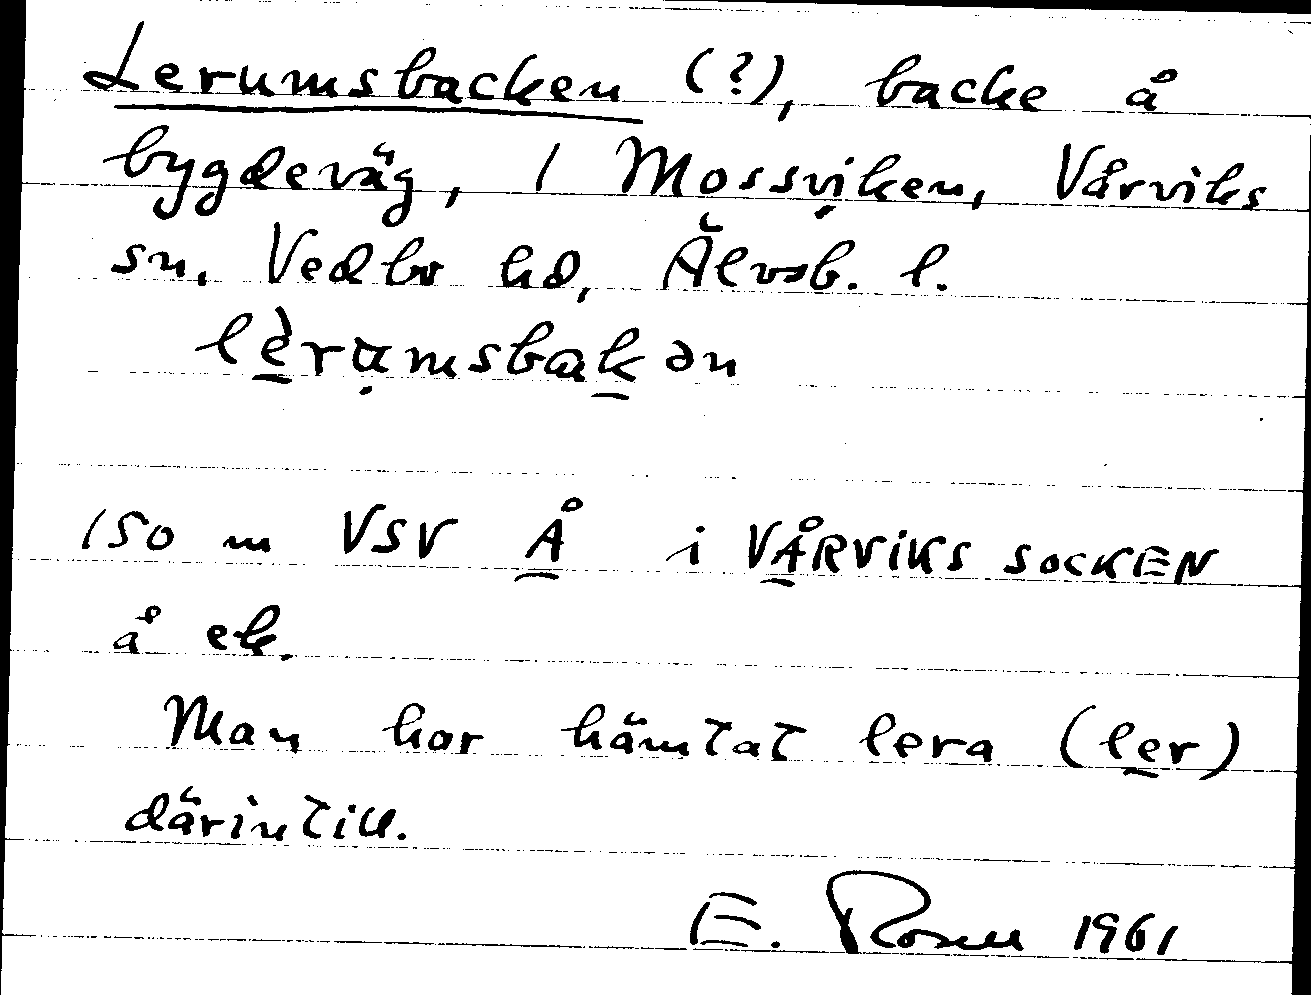 Lerumsbacken (?), backe å
bygdeväg, 1 Mossviken, Vårviks
sn, Vedbo hd, Älvsb. l.
lèrumsbakən
150 m VSV Å i VÅRVIKS SOCKEN
å ek.
Man har hämtat lera (ler)
därintill.
E. Rosell 1961